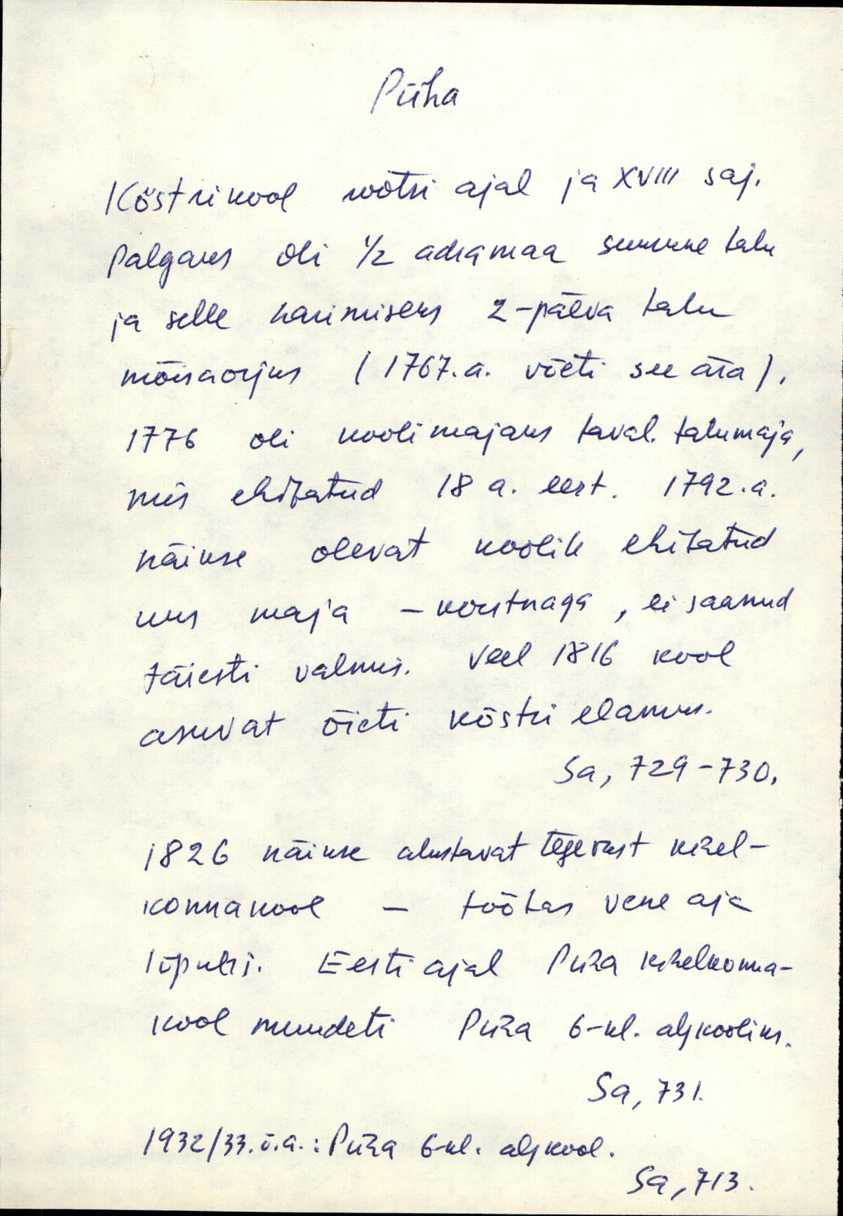 Püha
Köstrikool rootsi ajal ja XVIII saj.
Palgaks oli 1/2 adramaa suurune talu
ja selle harimiseks 2-päeva talu
mõisaorjus (1767.a. võeti see ära).
1776 oli koolimajaks taval. talumaja,
mis ehitatud 18 a. eest. 1792.a.
näikse olevat koolile ehitatud
uus maja – kostnaga, ei saanud
täiesti valmis. Veel 1816 kool
asuvat õieti köstri elamus.
Sa, 729-730.
1826 näikse alustavat tegevust kihel-
konnakool – töötas vene aja
lõpuni. Eesti ajal Püha kihelkonna-
kool muudeti Püha 6-kl. algkooliks.
Sa, 731.
1932/33.õ.a.: Püha 6-kl. algkool.
Sa, 713.